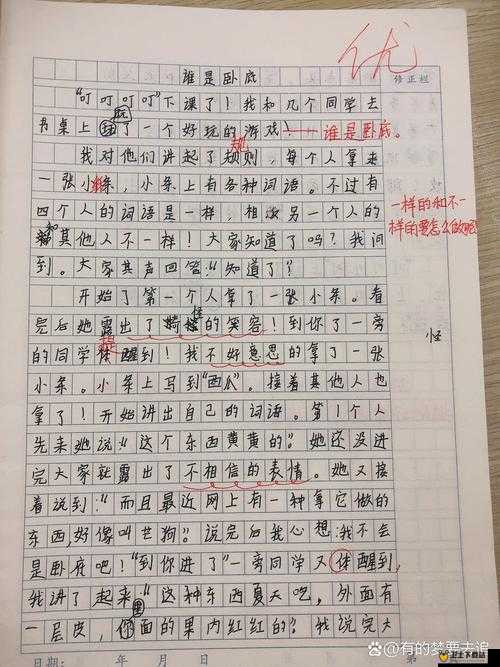 优
谁是卧底
修正栏
“叮叮叮叮”下课了！我和几个同学去
玩
书桌上 了一个好玩的游戏！——谁是卧底。
规
我对他们讲起了规则，每个人拿来
一张小条，小条上有各种词语。不过有
一样的和不一
四个人的词语是一样，相 另一个人的
样的要怎么做呢
和其他人不一样！大家知道了吗？我问
到。大家其声回答“知道了”
开始了第一个人拿了一张小条。看
怪
完后她露出了 的笑容！到你了一旁
怪
提
的同学体醒到！我不好意思的拿了一张
小条。小条上写到“西瓜”。接着其他人也
拿了！开始讲出自己的词语。第1个人
先来她说“这个东西黄黄的”。她还没进
完大家就露出了不相信的表情。她又接
着说到：“而且最近网上有一种拿它做的
东西，好像叫芒狗”。说完后我心想：我不会
是卧底吧！“到你进了”一旁同学又体醒到，
我讲了起来“这种东西夏天吃，外面有
里
一层皮， 面的果肉红红的！我说完大
日期： 年 月 日
第
@有的梦要去追